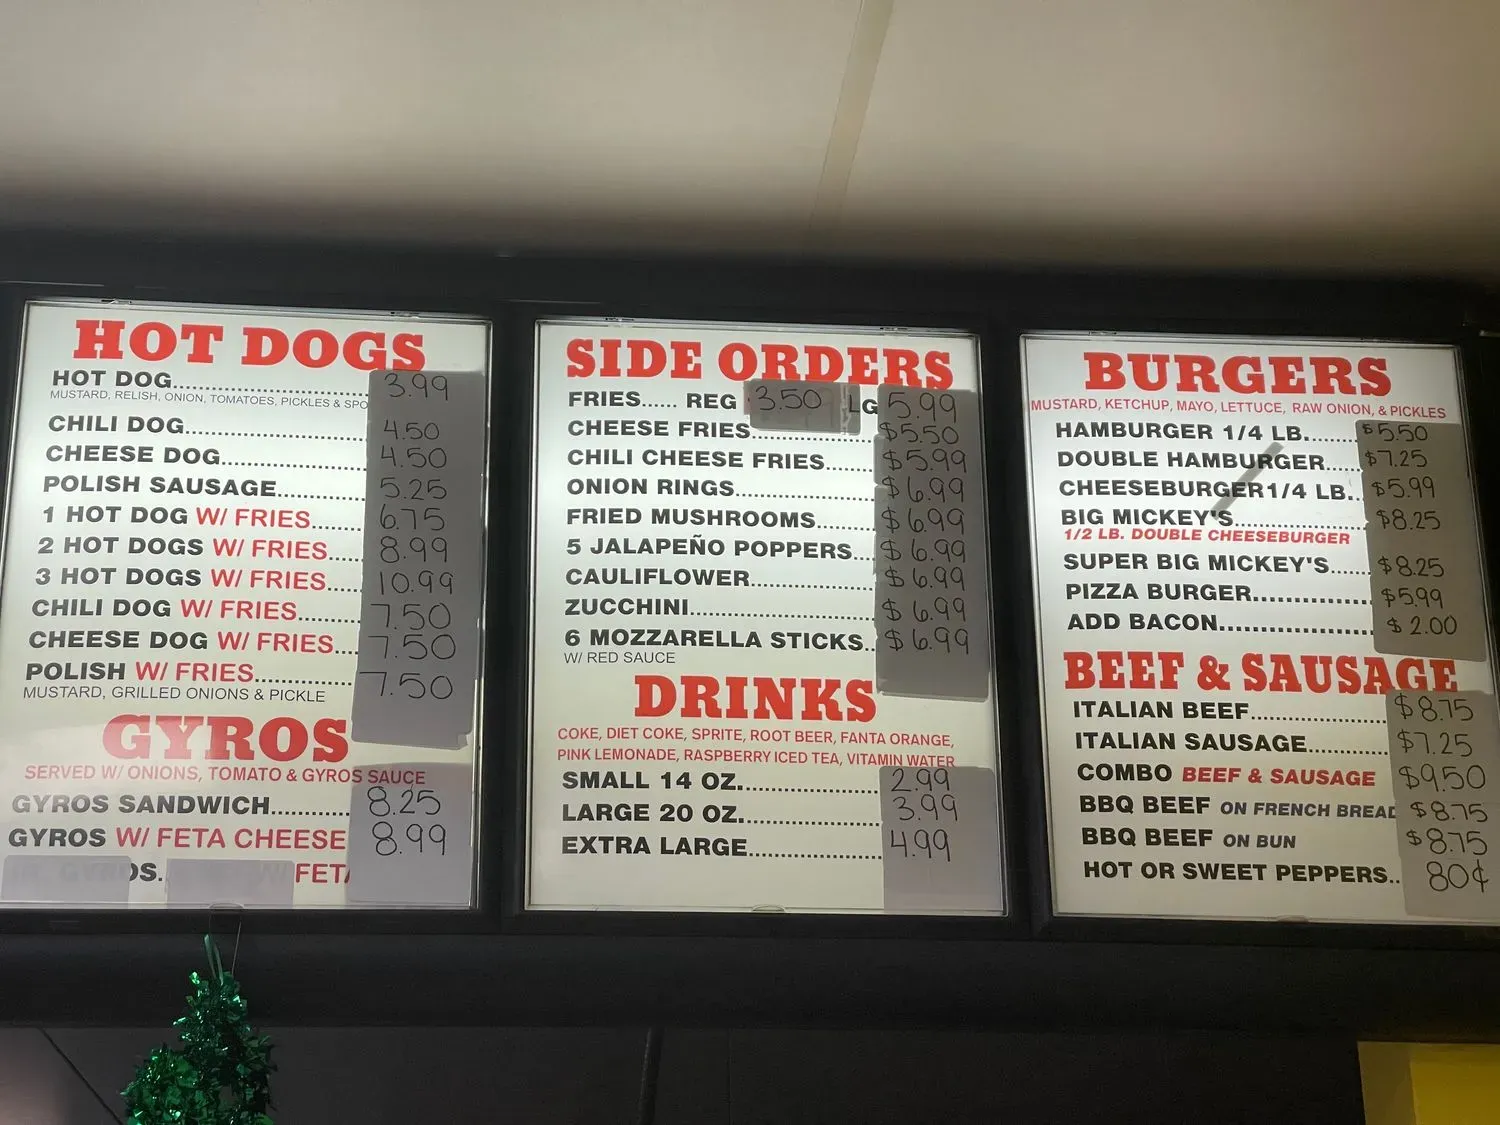 HOT DOGS
HOT DOG........................ 3.99
MUSTARD, RELISH, ONION, TOMATOES, PICKLES & SPO
CHILI DOG........................ 4.50
CHEESE DOG..................... 4.50
POLISH SAUSAGE............. 5.25
1 HOT DOG W/ FRIES....... 6.75
2 HOT DOGS W/ FRIES.... 8.99
3 HOT DOGS W/ FRIES.... 10.99
CHILI DOG W/ FRIES........ 7.50
CHEESE DOG W/ FRIES... 7.50
POLISH W/ FRIES.............. 7.50
MUSTARD, GRILLED ONIONS & PICKLE
GYROS
SERVED W/ ONIONS, TOMATO & GYROS SAUCE
GYROS SANDWICH........... 8.25
GYROS W/ FETA CHEESE 8.99
SIDE ORDERS
FRIES...... REG 3.50 LG 5.99
CHEESE FRIES.................. $5.50
CHILI CHEESE FRIES....... $5.99
ONION RINGS.................... $6.99
FRIED MUSHROOMS........ $6.99
5 JALAPEÑO POPPERS... $6.99
CAULIFLOWER.................. $6.99
ZUCCHINI.......................... $6.99
6 MOZZARELLA STICKS.. $6.99
W/ RED SAUCE
DRINKS
COKE, DIET COKE, SPRITE, ROOT BEER, FANTA ORANGE,
PINK LEMONADE, RASPBERRY ICED TEA, VITAMIN WATER
SMALL 14 OZ..................... 2.99
LARGE 20 OZ..................... 3.99
EXTRA LARGE................... 4.99
BURGERS
MUSTARD, KETCHUP, MAYO, LETTUCE, RAW ONION, & PICKLES
HAMBURGER 1/4 LB........ $5.50
DOUBLE HAMBURGER..... $7.25
CHEESEBURGER1/4 LB.. $5.99
BIG MICKEY'S................... $8.25
1/2 LB. DOUBLE CHEESEBURGER
SUPER BIG MICKEY'S...... $8.25
PIZZA BURGER................. $5.99
ADD BACON...................... $2.00
BEEF & SAUSAGE
ITALIAN BEEF................... $8.75
ITALIAN SAUSAGE........... $7.25
COMBO BEEF & SAUSAGE $9.50
BBQ BEEF ON FRENCH BREAD $8.75
BBQ BEEF ON BUN $8.75
HOT OR SWEET PEPPERS.. 80¢